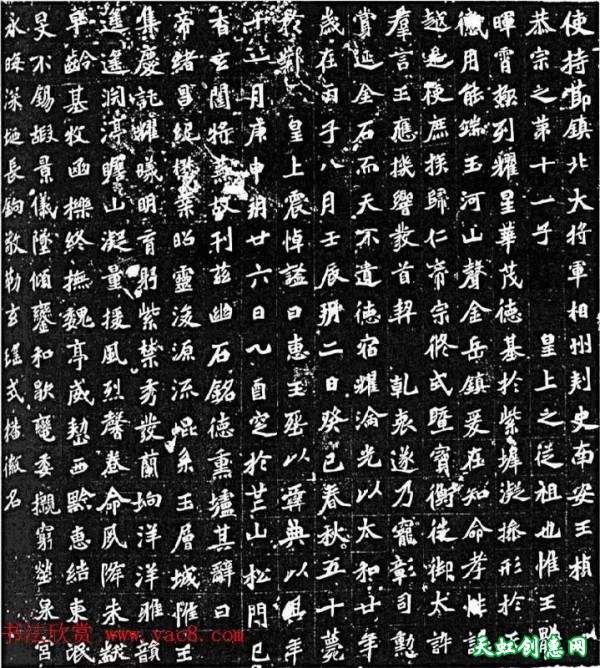 使持節鎮北大將軍相州刺史南安王楨
恭宗之第十一子 皇上之從祖也惟王體
暉霄極列耀星華茂德基於紫墀凝操形於天
儀用能端玉河山聲金岳鎮爰在知命孝性諶
越是使庶族歸仁帝宗攸式暨寶衡徙御太訊
羣言王應機響發首契 乾衷遂乃寵彰司勳
賞延金石而天不遺德宿耀淪光以太和廿年
歲在丙子八月壬辰朔二日癸巳春秋五十薨
於鄴 皇上震悼諡曰惠王葬以彝典以其年
十一月庚申朔廿六日乙酉窆於芒山松門已
杳玄闥將蕪故刊茲幽石銘德熏壚其辭曰
帝緒昌紀懋業昭靈浚源流崐系玉層城惟王
集慶託耀曦明育躬紫禁秀發蘭坰洋洋雅韻
遙遙淵渟瞻山凝量援風烈馨卷命夙降未黻
守齡基牧函櫟終撫魏亭威整西黔惠結東氓
旻不錫嘏景儀墜傾鑾和歇轡委櫬窮塋泉宮
永晦深埏長鎵敬勒玄瑤式播徽名
书法欣赏 www.yac8.com
天虹创意网